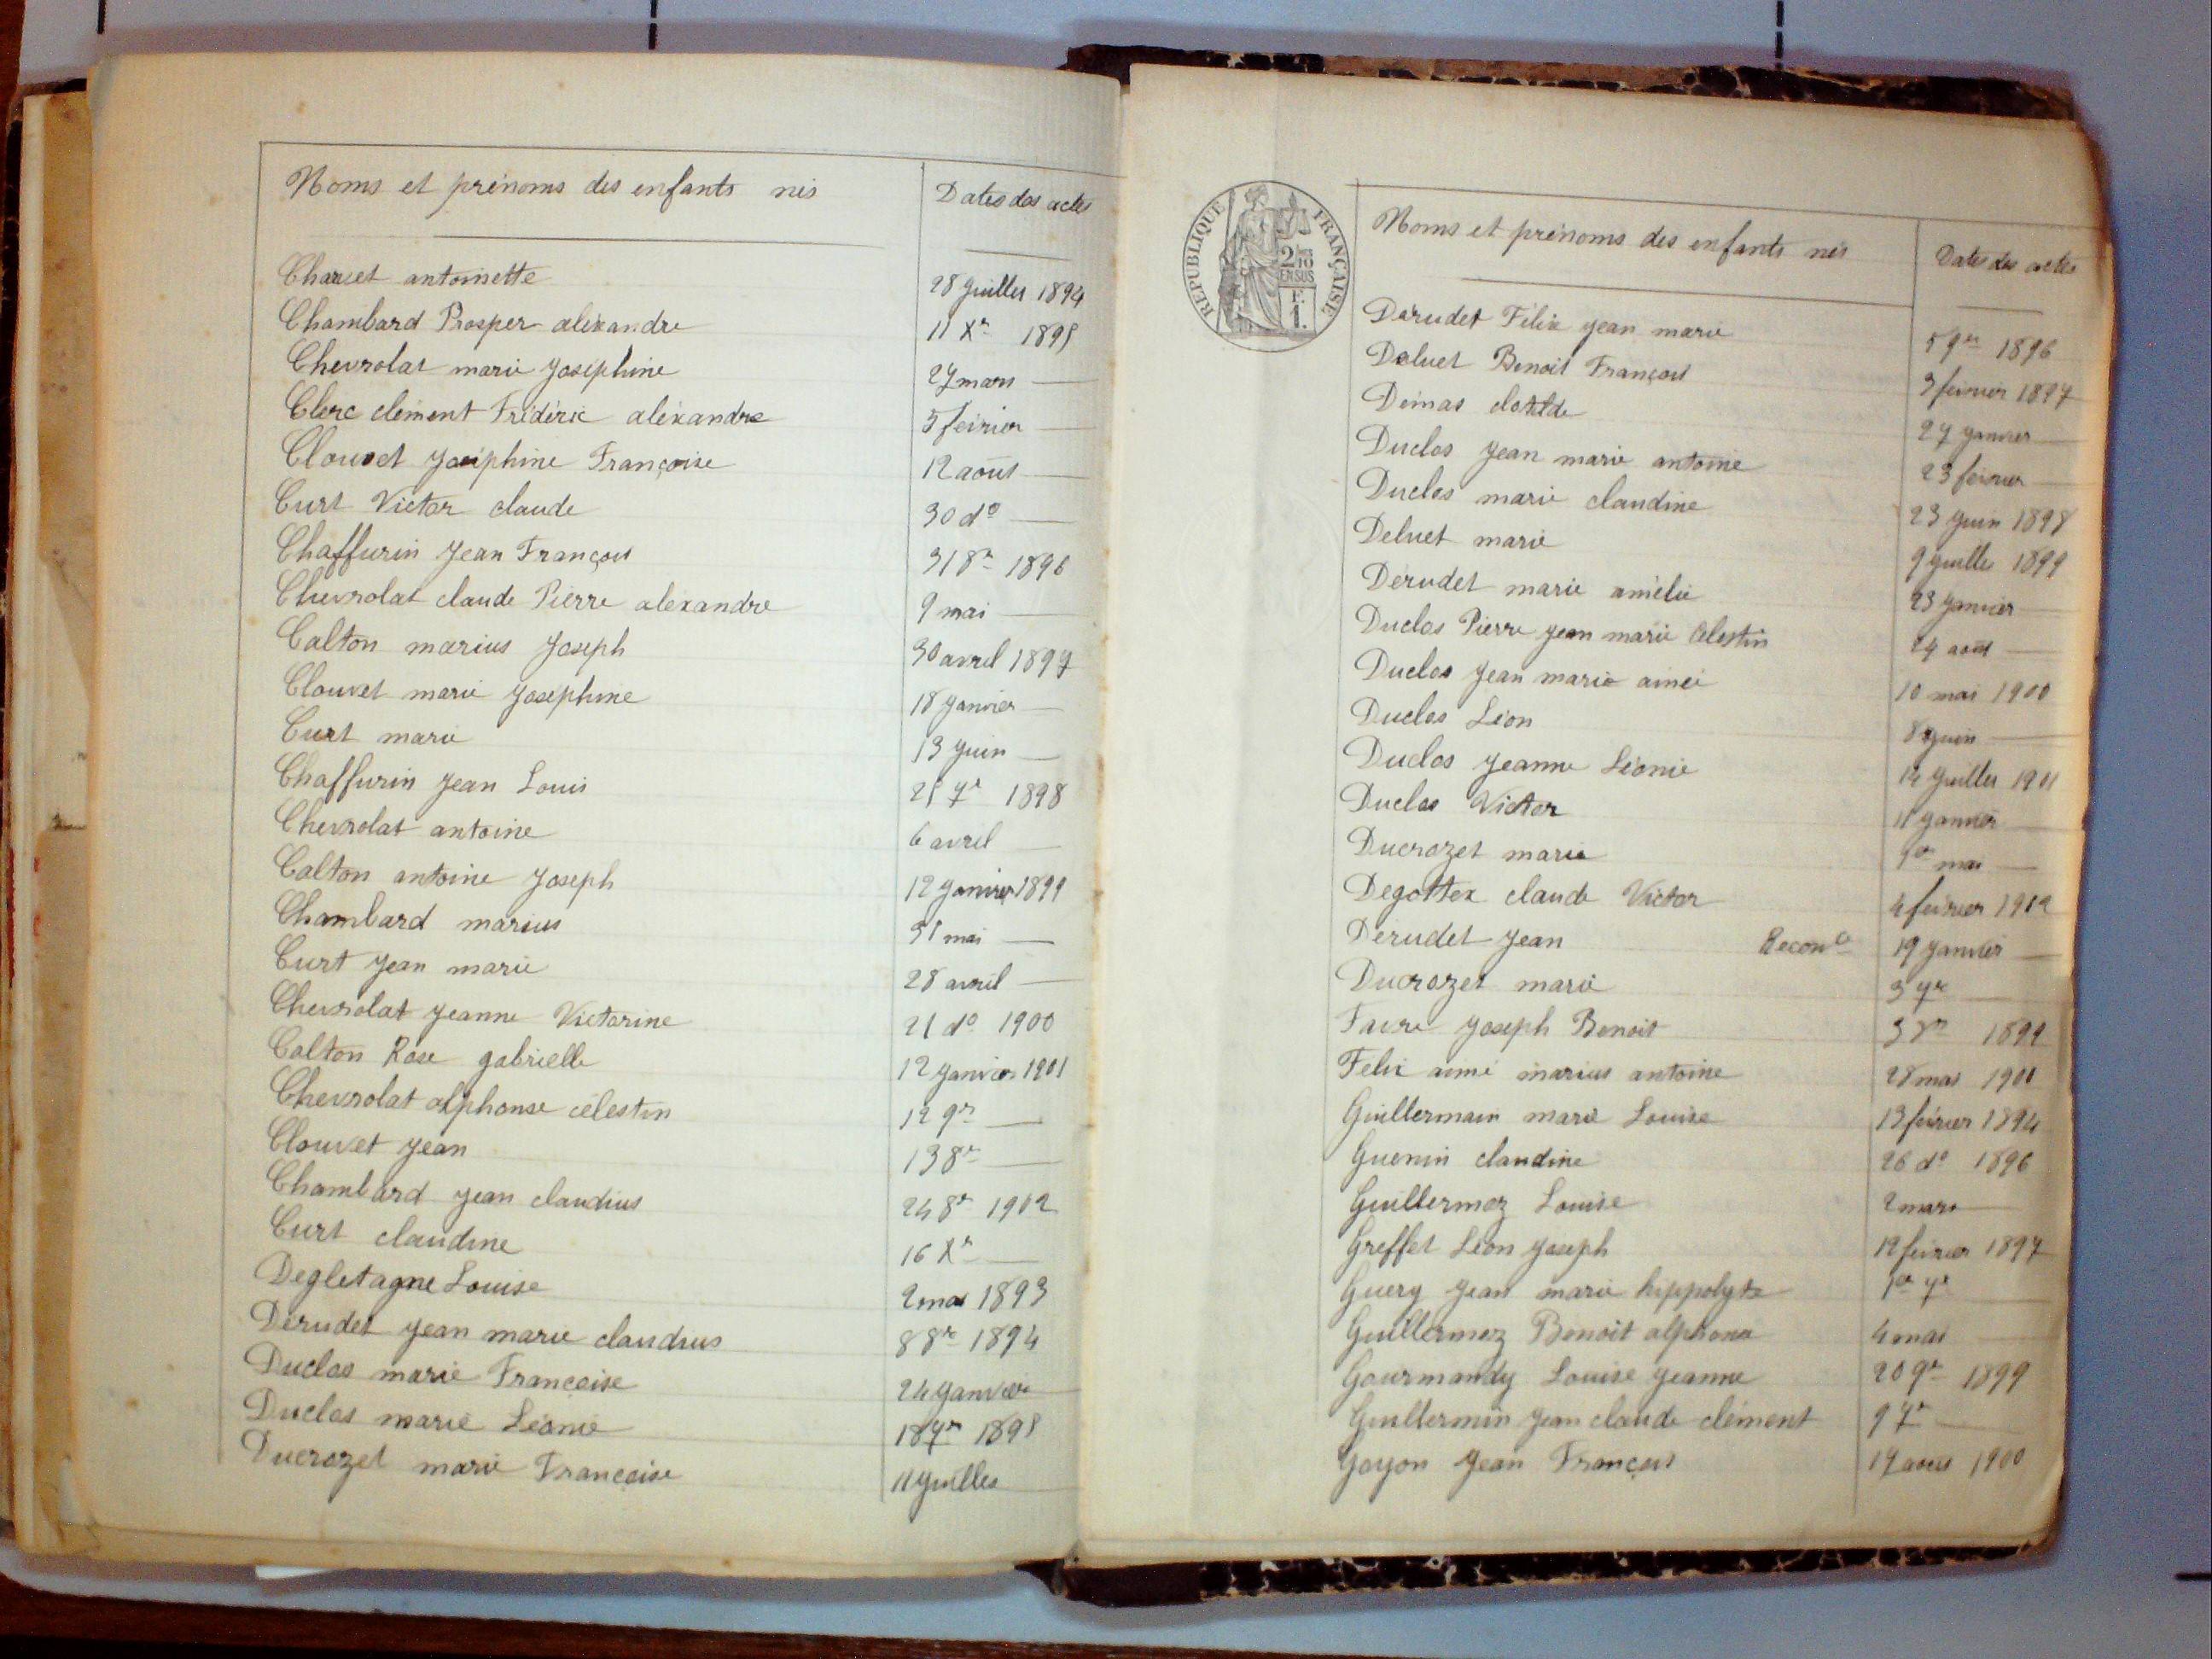 Noms et prénoms des enfants nés Dates des actes
Charvet antoinette 28 Juillet 1894
Chambard Prosper aléxandre 11 Xre 1895
Chevrolat marie Joséphine 27 mars —
Clerc clément Frédéric aléxandre 5 février —
Clouvet Joséphine Françoise 12 août —
Curt Victor claude 30 do —
Chaffurin Jean François 31 8re 1896
Chevrolat claude Pierre alexandre 9 mai —
Calton marius Joseph 30 avril 1897
Clouvet marie Joséphine 18 Janvier —
Curt marie 13 Juin —
Chaffurin Jean Louis 25 7re 1898
Chevrolat antoine 6 avril —
Calton antoine Joseph 12 Janvier 1899
Chambard marius 31 mai —
Curt Jean marie 28 avril —
Chevrolat Jeanne Victorine 21 do 1900
Calton Rose gabrielle 12 Janvier 1901
Chevrolat alphonse célestin 12 9re —
Clouvet Jean 13 8re —
Chambard Jean claudius 24 8re 1902
Curt claudine 16 Xre —
Degletagne Louise 2 mai 1893
Dérudet Jean marie claudius 8 8re 1894
Duclos marie Françoise 24 Janvier
Duclos marie Léonie 18 7re 1895
Ducrozet marie Françoise 11 Juillet
REPUBLIQUE FRANÇAISE
2/10
EN SUS
F.
1.
Noms et prénoms des enfants nés Dates des actes
Dérudet Félix Jean marie 5 9re 1896
Deluet Benoit François 3 février 1897
Démas clotilde 27 Janvier —
Duclos Jean marie antoine 23 février —
Duclos marie claudine 23 Juin 1898
Deluet marie 9 Juillet 1899
Dérudet marie amélie 23 Janvier —
Duclos Pierre Jean marie Célestin 24 août —
Duclos Jean marie aimé 10 mai 1900
Duclos Léon 8 Juin —
Duclos Jeanne Léonie 14 Juillet 1901
Duclos Victor 11 Janvier —
Ducrozet marie 1er mai —
Degottex claude Victor 4 février 1902
Dérudet Jean Reconce 19 Janvier —
Ducrozet marie 3 7re —
Favre Joseph Benoit 3 8re 1899
Félix aimé marius antoine 28 mai 1901
Guillermain marie Louise 13 février 1894
Guenin claudine 26 do 1896
Guillermoz Louise 2 mars —
Greffet Léon Joseph 12 février 1897
Guery Jean marie hippolyte 1er 7re —
Guillermoz Benoit alphonse 4 mai —
Gourmandy Louise Jeanne 20 9re 1899
Guillermin Jean claude clément 9 7re —
Goyon Jean François 17 août 1900